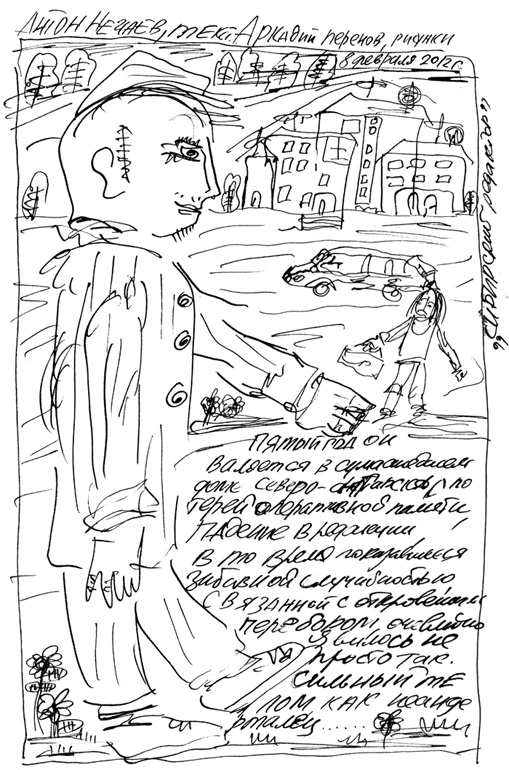 Антон Нечаев, текст. Аркадий Перенов, рисунки
8 февраля 2012 г.
"Сибирский редактор"
Пятый год он
валяется в сумасшедшем
доме Северо-
терей оперативной памяти
Падение в редакции,
в то время показавшееся
забавной случайностью
связанной с откровенным
перебором, очевидно
явилось не
просто так.
Сильный те
лом как неанде
рталец......